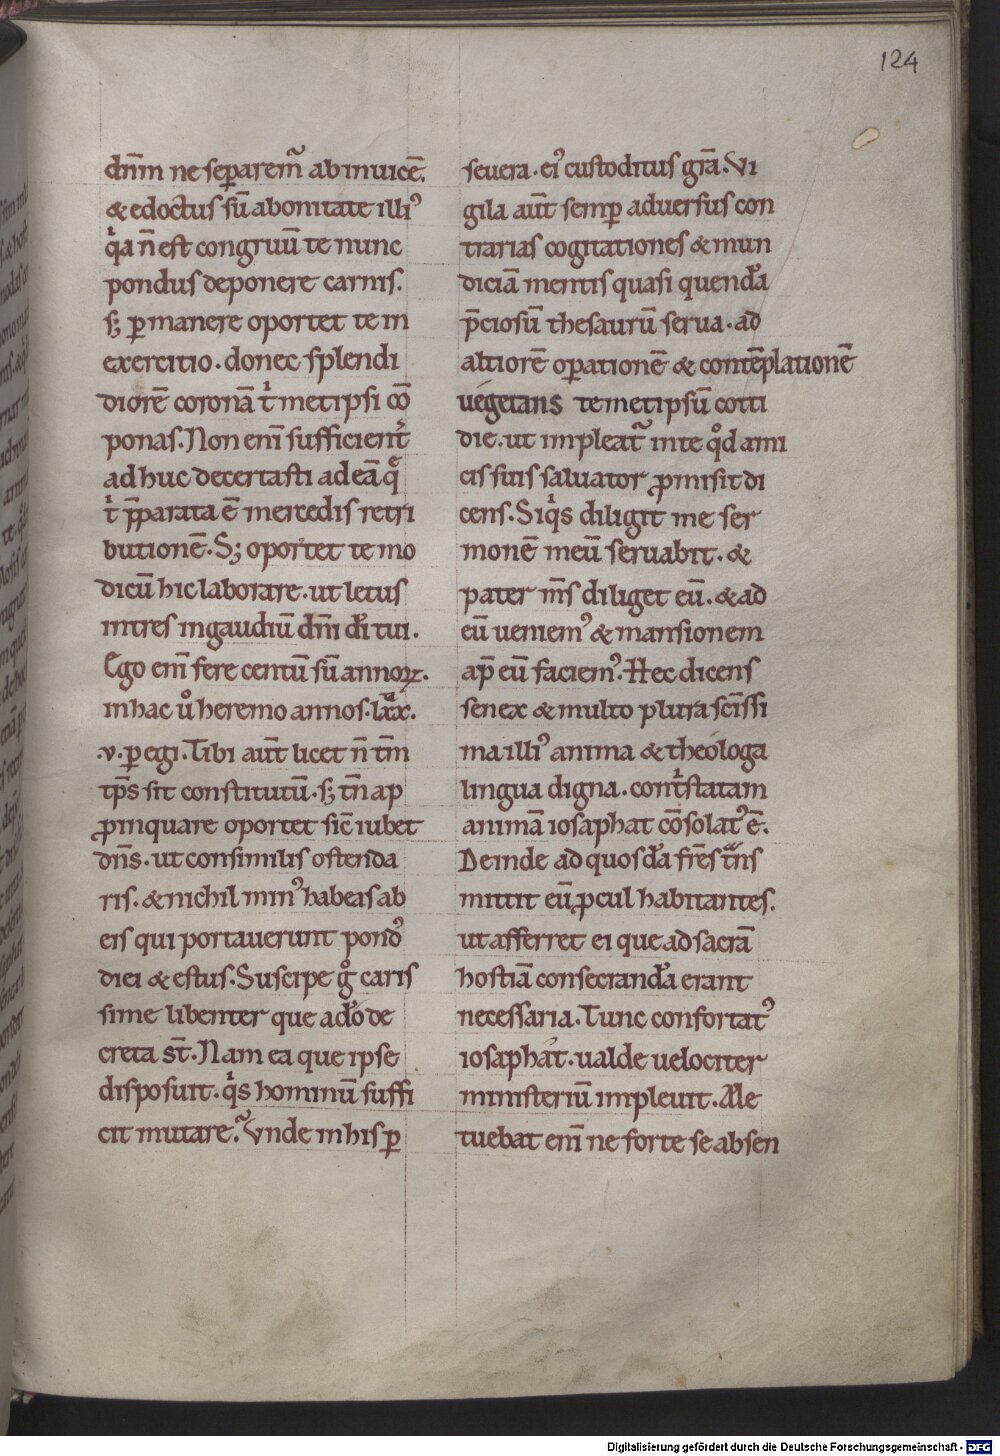 124
dn̄m ne sepparem̃ ab inuicē.
& edoctus sū abonitate illiꝰ
qͥa n̄ est congruū te nunc
pondus deponere carnis.
sꝫ ꝑmanere oportet te in
exercitio. donec splendi
diorē coronā tͥ metipsi cō
ponas. Non eni᷑ sufficient᷑
ad huc decertasti ad eā q̄
tͥ p̄parata ē mercedis retri
butionē. Sꝫ oportet te mo
dicū hic laborare. ut letus
intres in gaudiū dn̄i di᷑ tui.
Ego eni᷑ fere centū sū annoꝝ.
in hac uͦ heremo annos. lxͣx.
.v. ꝑegi. Tibi aūt licet n̄ tm̄
tp̄s sit constitutū. sꝫ tn̄ ap
ꝓpinquare oportet sic̄ iubet
dn̄s. ut consimilis ostenda
ris. & nichil minꝰ habeas ab
eis qui portauerunt pondꝰ
diei & estus. Suscipe gͦ caris
sime libenter que a do᷑ de
creta st̄. Nam ea que ipse
disposuit. qͥs hominū suffi
cit mutare. Vnde in his ꝑ
seuera. eiꝰ custoditus gr̄a. Vi
gila aūt semꝑ aduersus con
trarias cogitationes & mun
diciā mentis quasi quenda᷑
p̄ciosū thesaurū serua. ad
altiorē oꝑationē & contēplationē
uegetans temetipsū cotti
die. ut impleat᷑ in te qͦd ami
cis suis saluator ꝓmisit di
cens. Si qͥs diligit me ser
monē meū seruabit. &
pater m̄s diliget eū. & ad
eū ueniemꝰ & mansionem
ap̄ eū faciemꝰ. Hec dicens
senex & multo plura sc̄issi
ma illiꝰ anima & theologa
lingua digna. contͥstatam
animā iosaphat cōsolatꝰ ē.
Deinde ad quosda᷑ fr̄es mͣns
mittit eū ꝓcul habitantes.
ut afferret ei que ad sacrā
hostiā consecranda᷑ erant
necessaria. Tunc confortatꝰ
iosaphat. ualde uelociter
ministeriū impleuit. Me
tuebat eni᷑ ne forte se absen
Digitalisierung gefördert durch die Deutsche Forschungsgemeinschaft - DFG